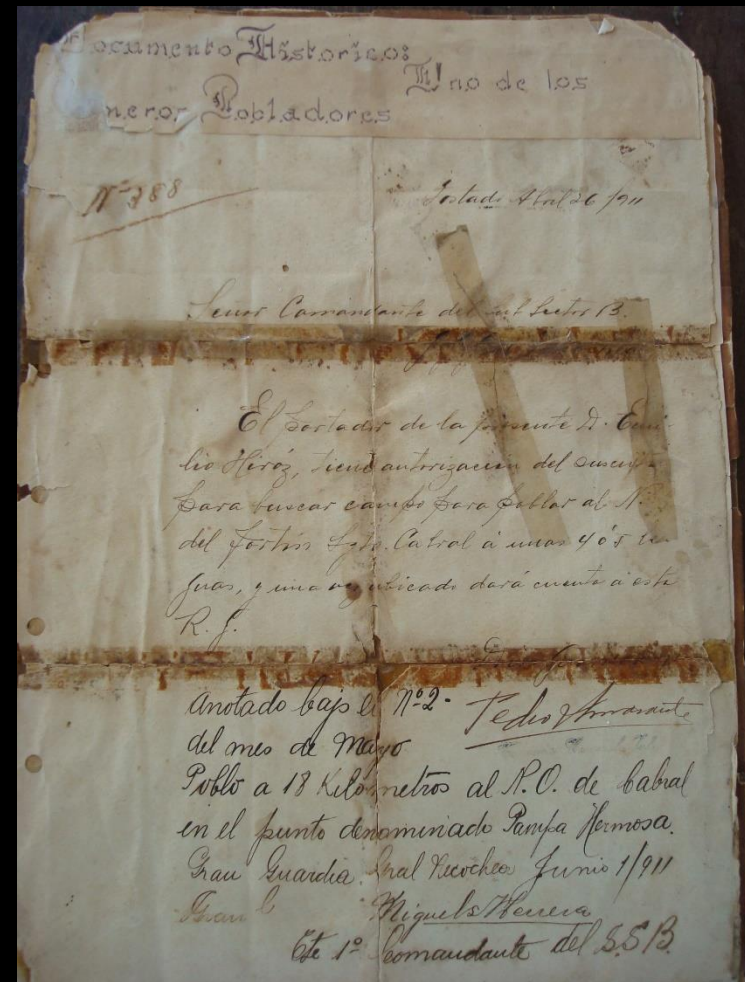 Documento Historico:
Uno de los
meror Pobladores
Nº 388
Tostado Abril 26/911
Señor Comandante del Sub Sector B.
El portador de la presente D. Emi-
lio Heróz, tiene autorizacion del suscrito
para buscar campo para poblar al N.
del fortin Sgto. Cabral á unas 4 ó 5 le-
guas, y una vez ubicado dará cuenta á este
R. J.
anotado bajo el Nº 2-
Pedro Amarante
del mes de Mayo
Poblo a 18 Kilómetros al N.O. de Cabral
en el punto denominado Pampa Hermosa.
Gran Guardia Gral Necochea Junio 1/911
Miguel S Herrera
Cte 1º Comandante del S.S.B.